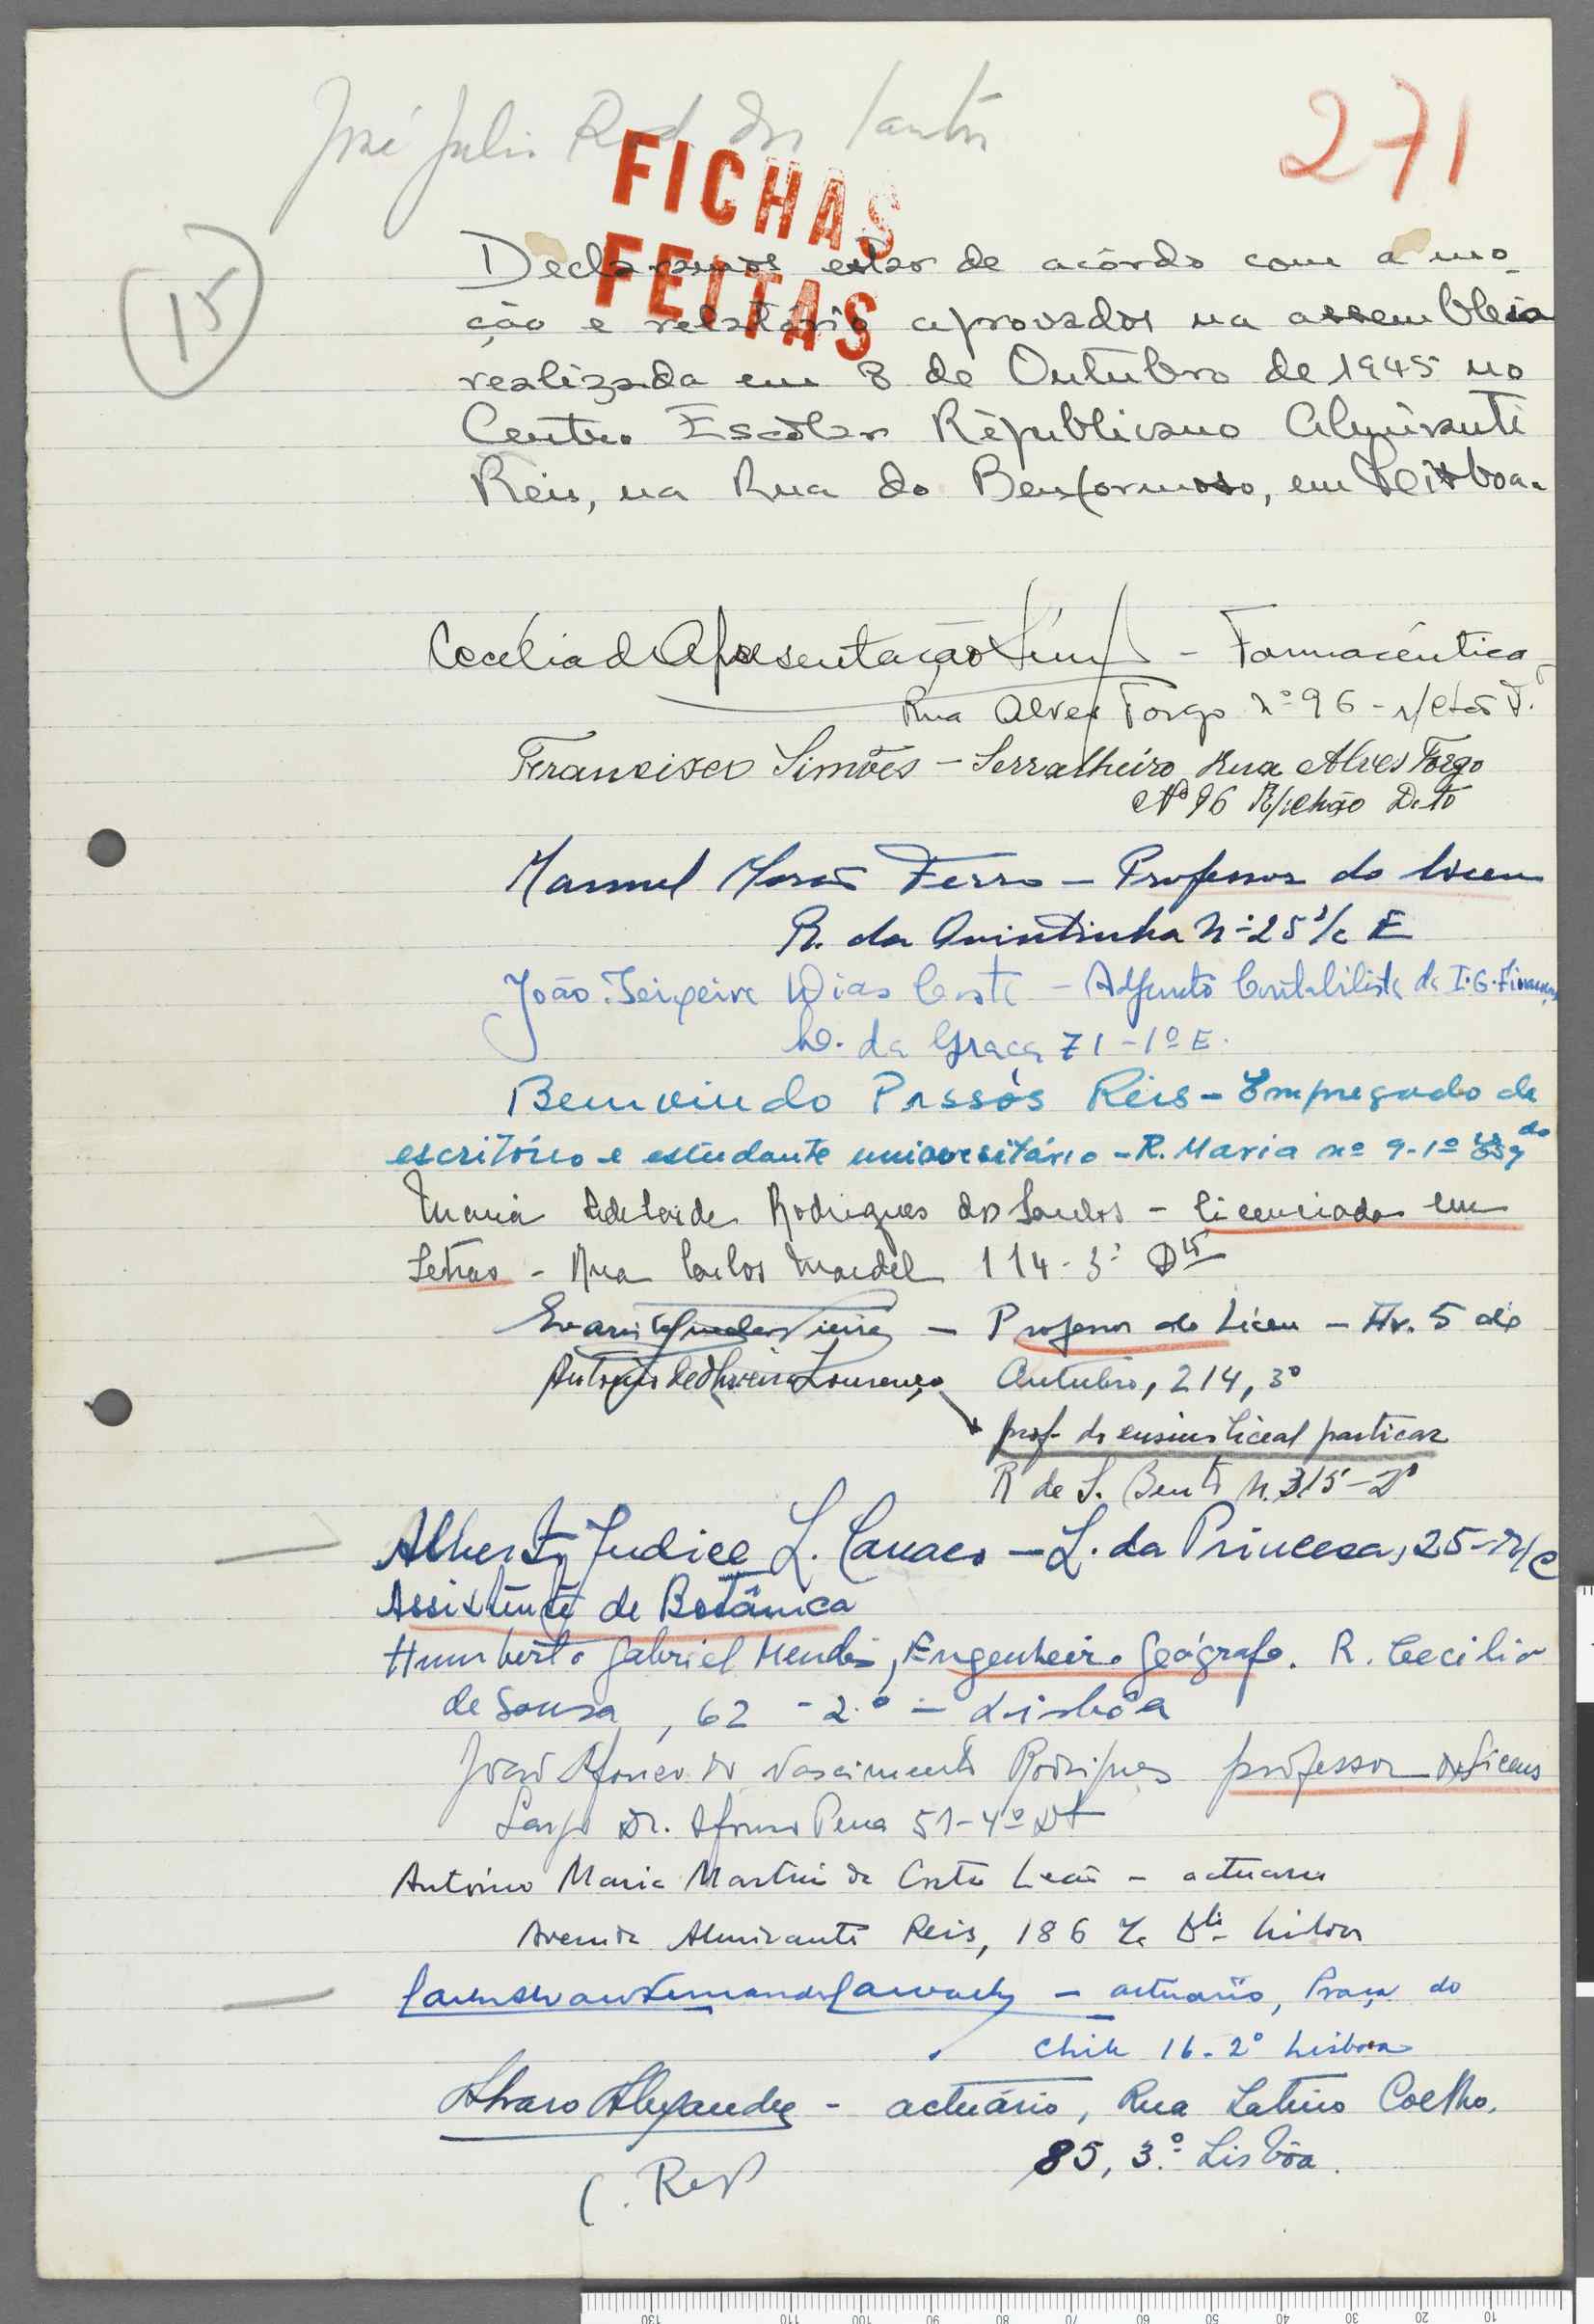 José Julio Rod. dos Santos
271
FICHAS
FEITAS
15
Declaramos estar de acôrdo com a mo-
ção e relatório aprovados na assembleia
realizada em 8 de Outubro de 1945 no
Centro Escolar Républicano Almirante
Reis, na Rua do Benformoso, em Leisboa.
Cecília d Apresentação - Farmacêutica
Rua Alves Torgo nº 96 - r/chão D.
Francisco Simões - Serralheiro Rua Alves Torgo
Nº 96 R/chão Dto
Manuel Ferro - Professor do liceu
R. da Quintinha nº 25 r/c E
João Teixeira Dias Costa - Adjunto Contabilista da I.G. Finanças
L. da Graça 71 - 1º E.
Bemvindo Passos Reis - Empregado de
escritório e estudante universitário - R. Maria nº 9-1º Esqdo
Maria Adelaide Rodrigues dos Santos - licenciada em
Letras - Rua Carlos Mardel 114-3º Dto
Evaristo Guedes Vieira - Professor do Liceu - Av. 5 de
António de Oliveira Lourenço Outubro, 214, 3º
prof. do ensino liceal particar
R de S. Bento n. 315-2º
Alberto Judice L. Canaes - L. da Princesa, 25-R/c
Assistente de Botânica
Humberto Gabriel Mendes, Engenheiro Geógrafo. R. Cecilio
de Sousa, 62 - 2.º - Lisbôa
João Afonso do Nascimento Rodrigues professor de Liceus
Largo Dr. Afonso Pena 51-4º Dt
António Maria Martins da Costa Leão - actuario
Avenida Almirante Reis, 186 Lisboa
- actuario, Praça do
Chile 16-2º Lisboa
Alvaro Alexandre - actuário, Rua Latino Coelho,
85, 3.º Lisbôa.